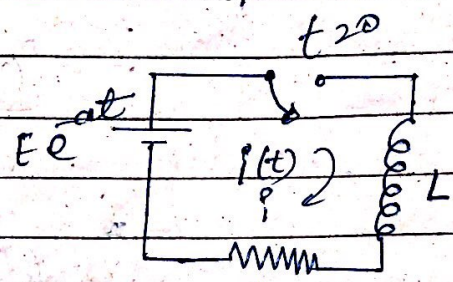 t=0
E e^-at
i(t)
?
L